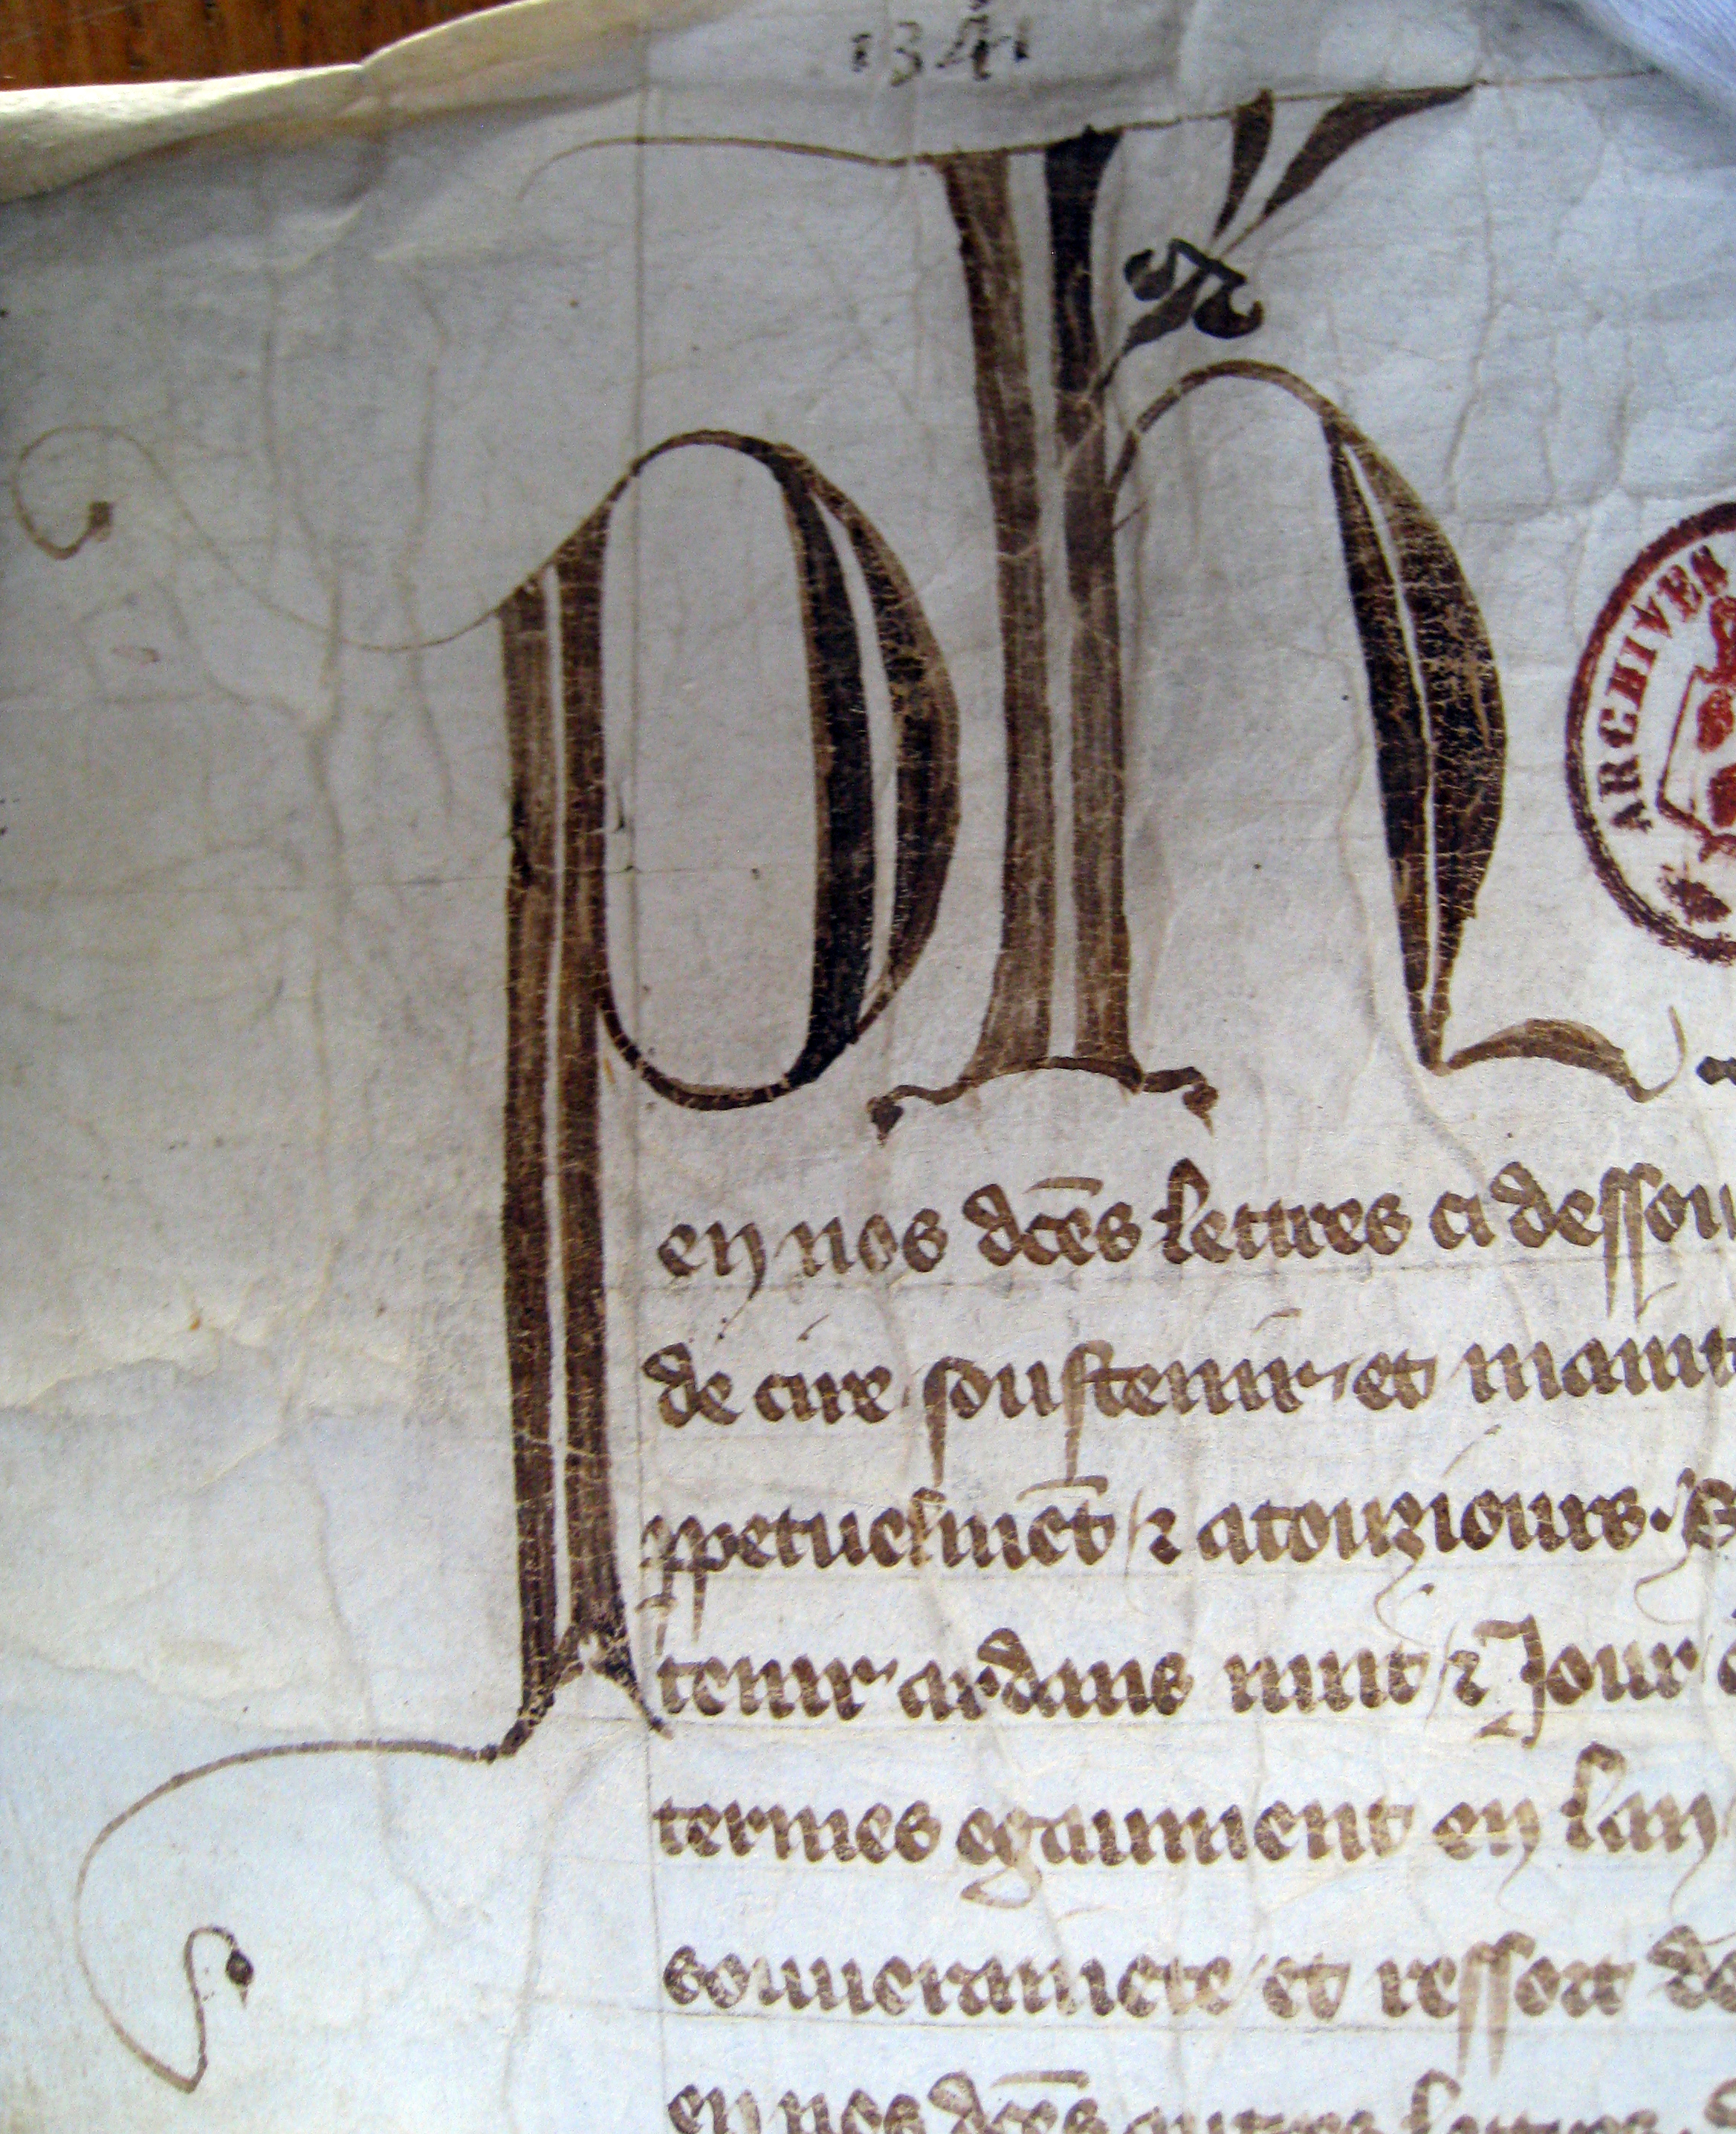 1341
Ph
ARCHIVES
en nos dc̄es lettres ci dessou
de cire soustenir et maint
ppetuelmēt / ⁊ atouziours. E
tenir ardans nuit / ⁊ Jour
termes egaument en lan
souuerainete / et ressort de
en nos dc̄es autres lettres